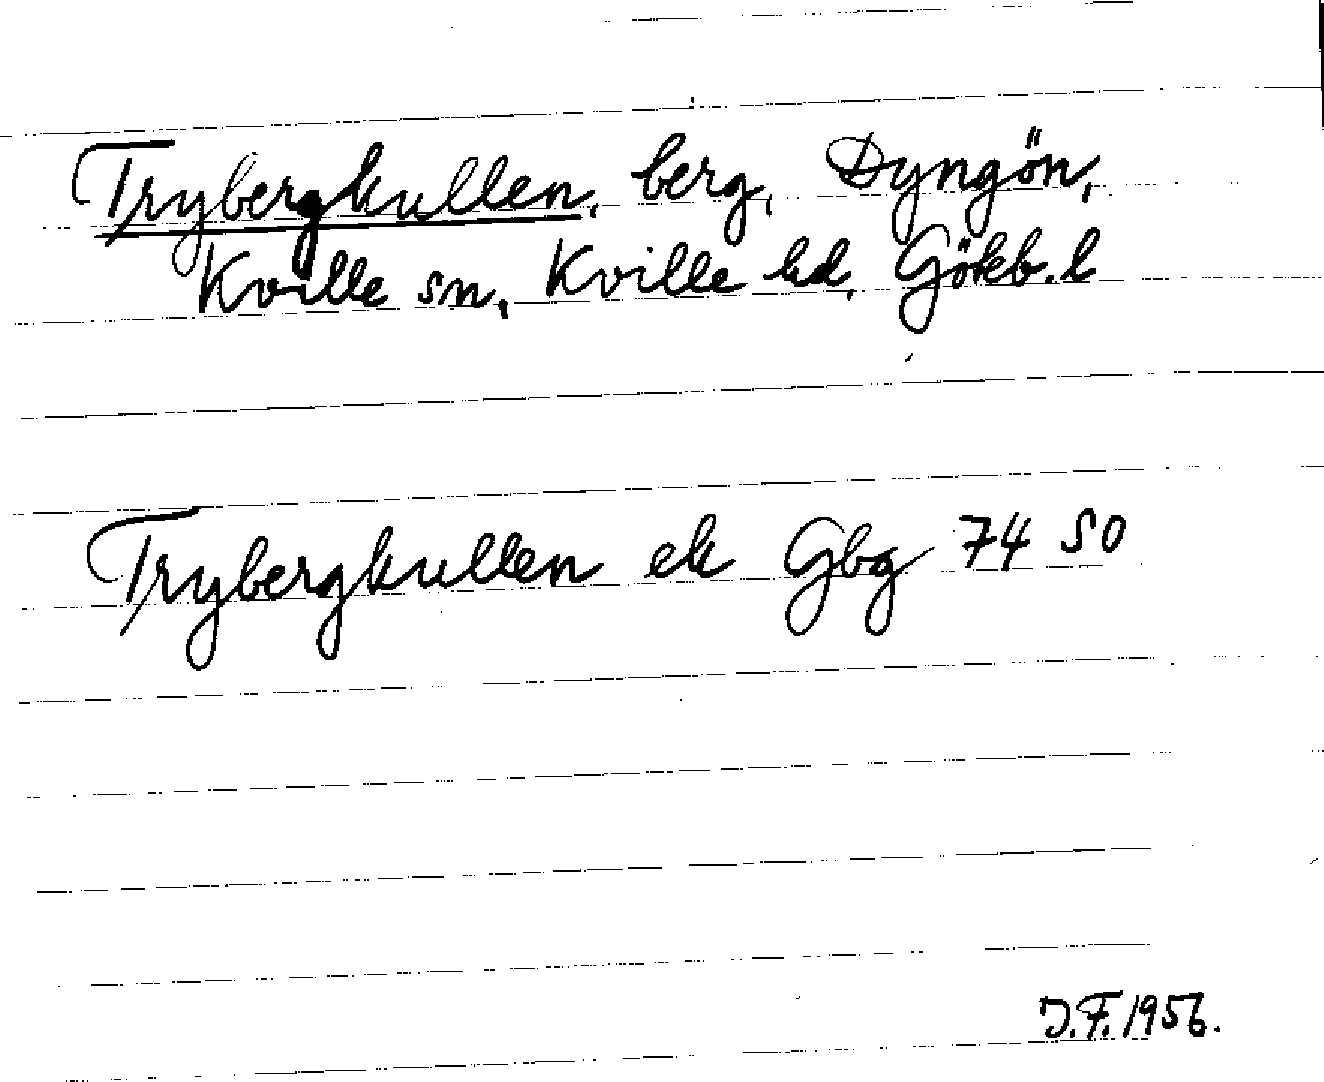 Trybergkullen, berg, Dyngön,
Kville sn, Kville hd, Göteb. l
Trybergkullen ek Gbg 74 SO
J.F. 1956.